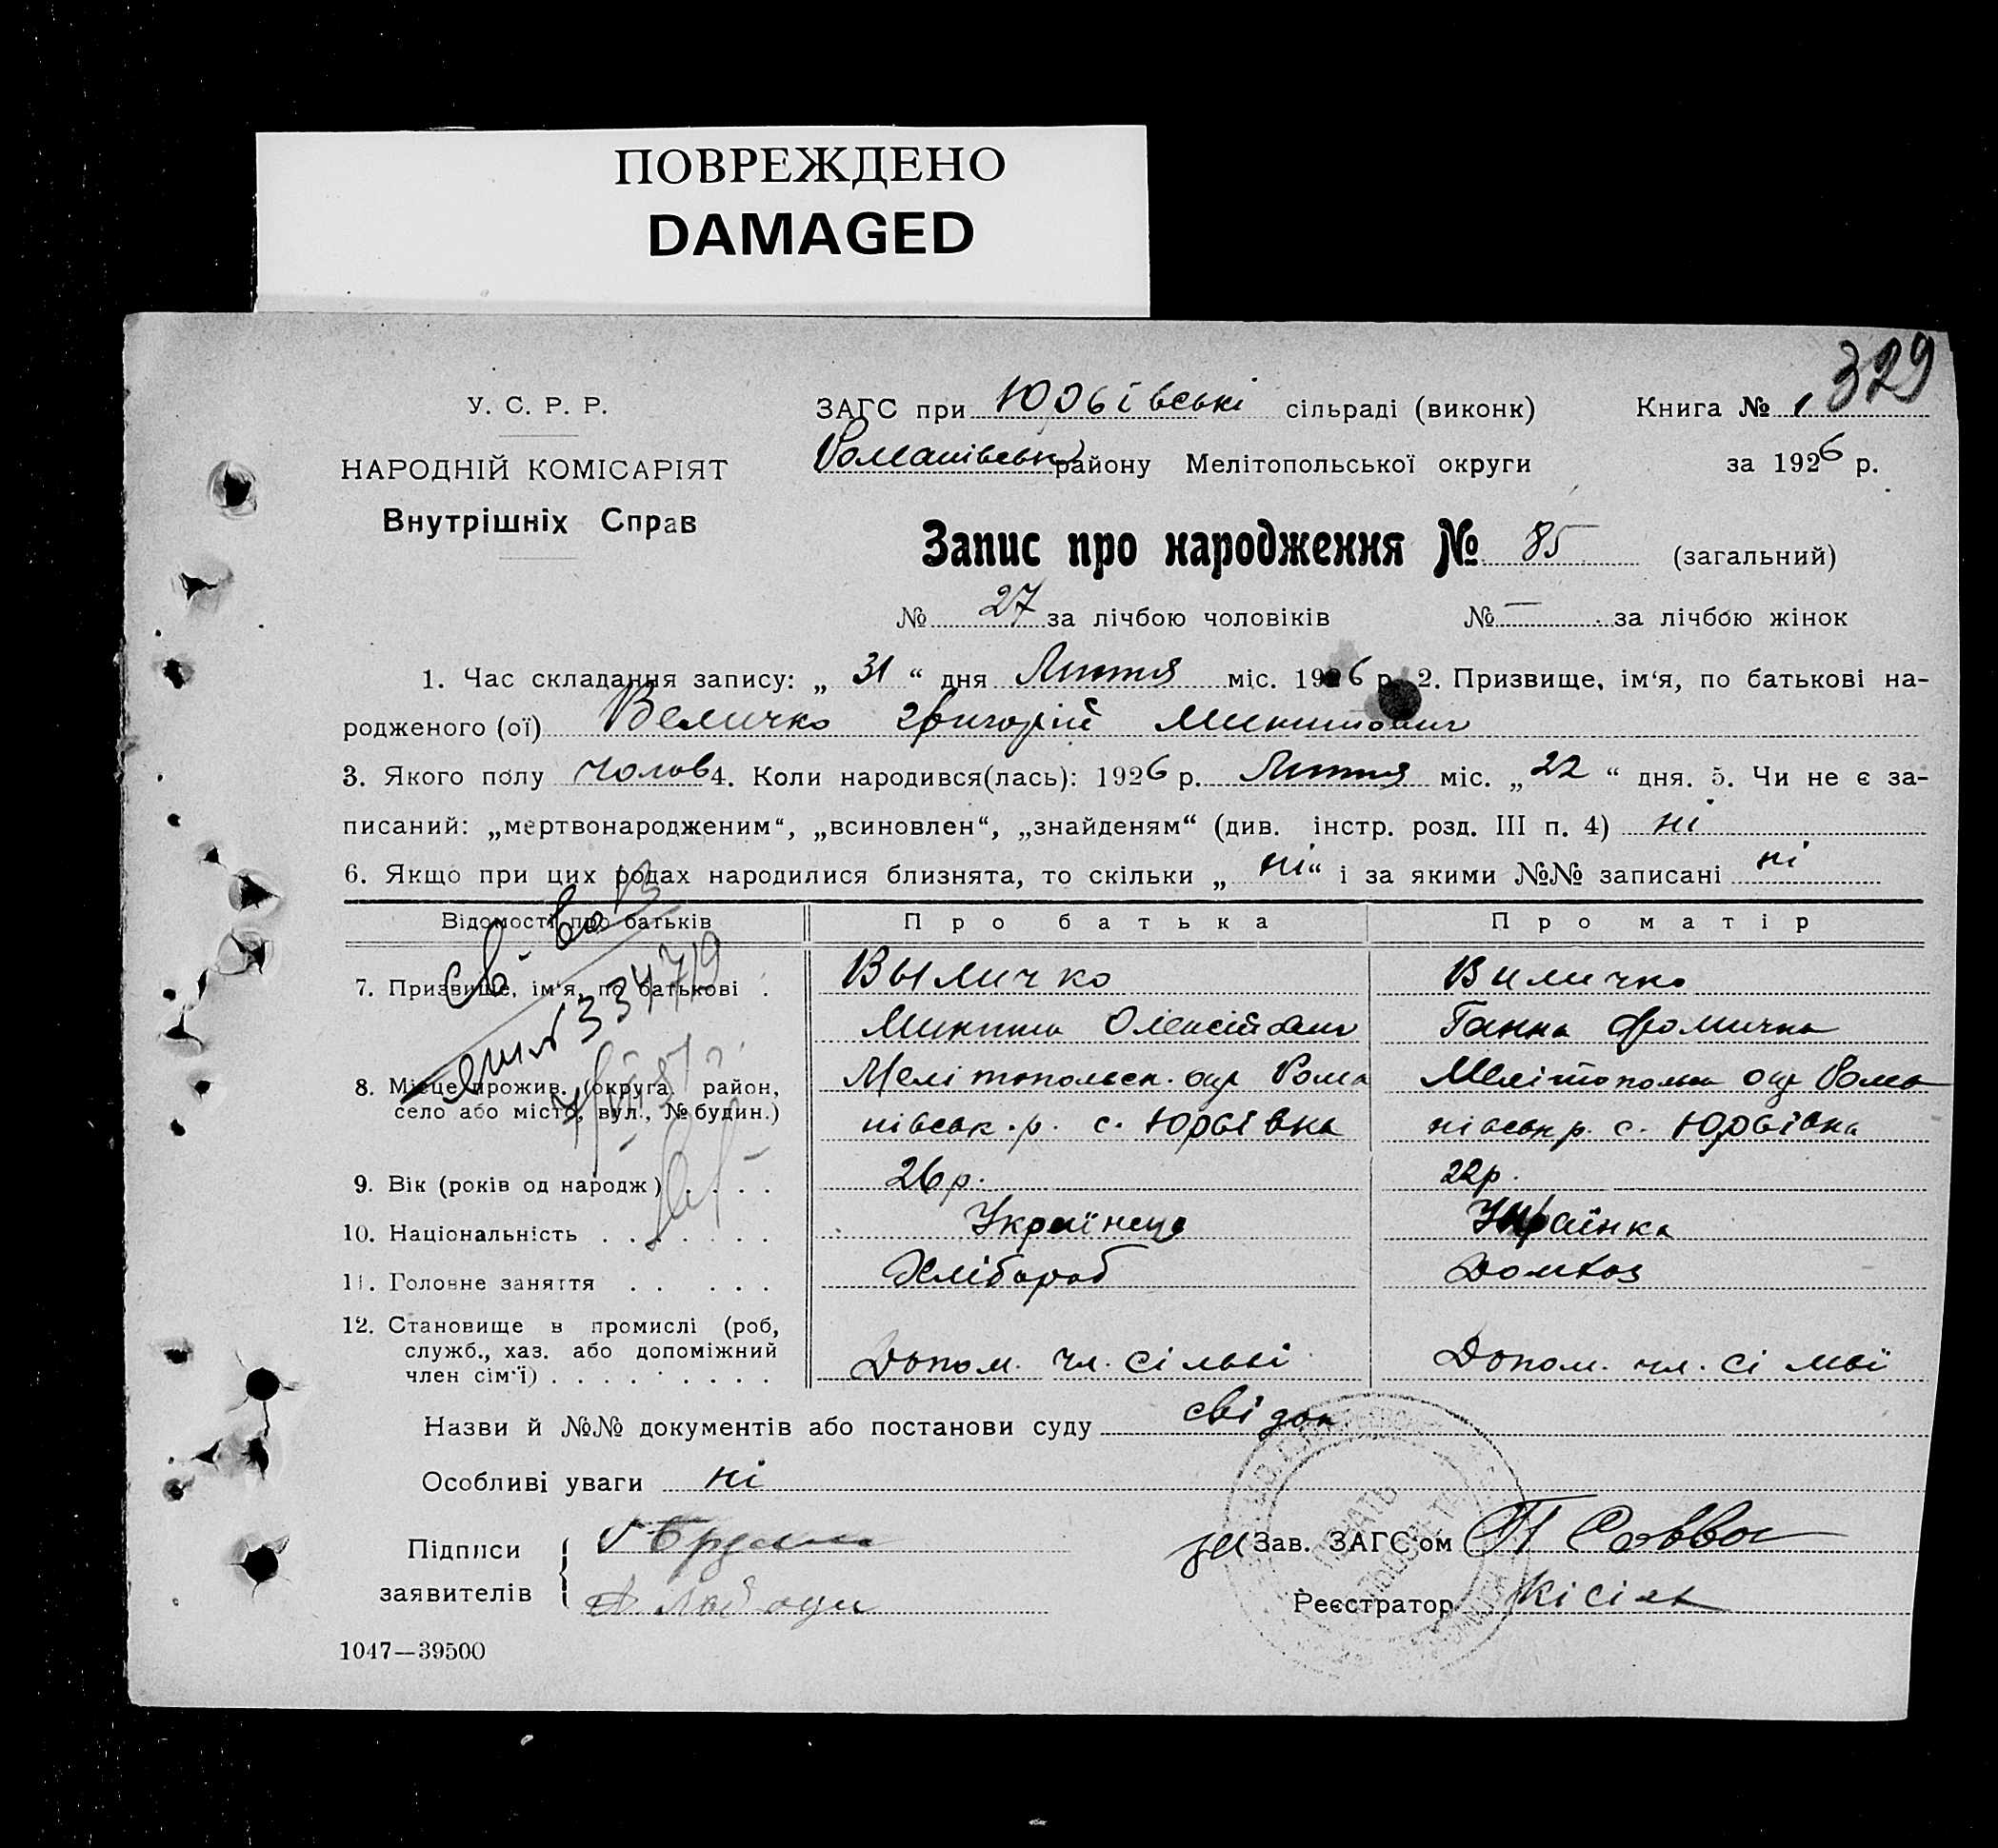 ПОВРЕЖДЕНО
DAMAGED
329
У. С. Р. Р.
НАРОДНІЙ КОМІСАРІЯТ
Внутрішніх Справ
ЗАГС при Юрьївські сільраді (виконк) Книга № 1
Романівськ району Мелітопольської округи за 1926 р.
Запис про народження № 85 (загальний)
№ 27 за лічбою чоловіків № — за лічбою жінок
1. Час складання запису: „ 31 “ дня Люття міс. 1926 р. 2. Призвище, ім‘я, по батькові на-
родженого (ої) Величко Григорій Микитович
3. Якого полу чолов 4. Коли народився(лась): 1926 р. Люття міс. „ 22 “ дня. 5. Чи не є за-
писаний: „мертвонародженим“, „всиновлен“, „знайденям“ (див. інстр. розд. III п. 4) ні
6. Якщо при цих родах народилися близнята, то скільки „ ні “ і за якими №№ записані ні
Відомості про батьків Про батька Про матір
7. Призвище, ім‘я, по батькові Выличко Виличко
Микита Олексійович Ганна Фомична
8. Місце прожив. (округа, район, Мелітопольск. окр Рома Мелітопольск окр Рома
село або місто, вул., № будин.) нівськ. р. с. Юрьївка нівськ р. с. Юрьївка
9. Вік (років од народж) 26 р. 22 р.
10. Національність Українець Українка
11. Головне заняття Хлібороб Домхоз
12. Становище в промислі (роб,
служб., хаз. або допоміжний
член сім‘ї) Допом. чл. сільві Допом. чл. сімьї
Назви й №№ документів або постанови суду свідок
Особливі уваги ні
Підписи
заявителів
Зав. ЗАГС‘ом П Савва
Реєстратор Кісіль
1047—39500